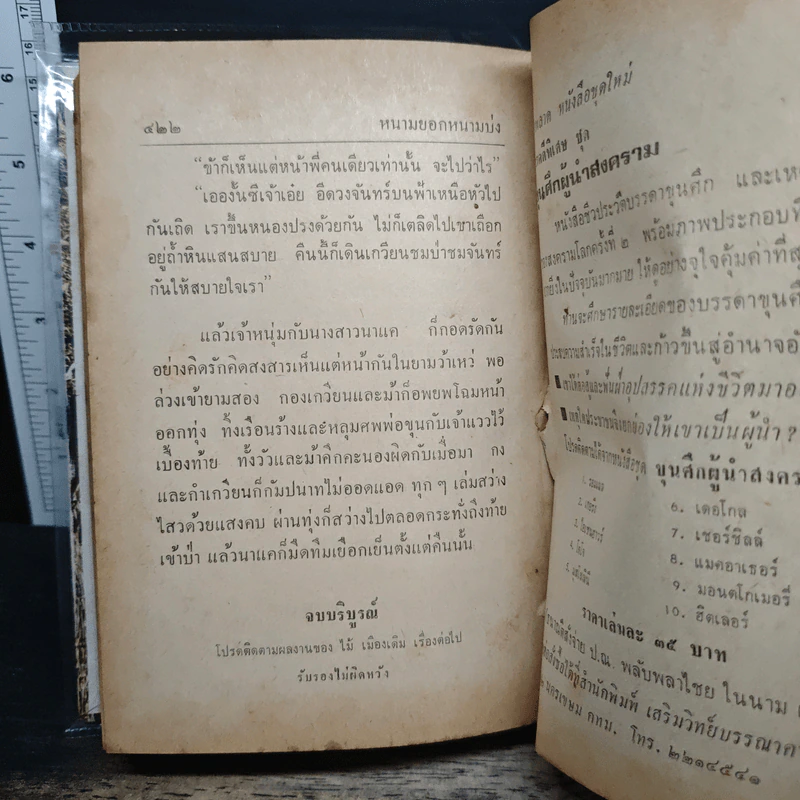 ๔๒๒ หนามยอกหนามบ่ง
“ข้าก็เห็นแต่หน้าพี่คนเดียวเท่านั้น จะไปว่าไร”
“เออ งั้นซีเจ้าเอ๋ย อีดวงจันทร์บนฟ้าเหนือหัวไป
กันเถิด เราขึ้นหนองปรงด้วยกัน ไม่ก็เตลิดไปเขาเถือก
อยู่ถ้ำหินแสนสบาย คืนนี้ก็เดินเกวียนชมป่าชมจันทร์
กันให้สบายใจเรา”
แล้วเจ้าหนุ่มกับนางสาวนาแค ก็กอดรัดกัน
อย่างคิดรักคิดสงสารเห็นแต่หน้ากันในยามว้าเหว่ พอ
ล่วงเข้ายามสอง กองเกวียนและม้าก็อพยพโฉมหน้า
ออกทุ่ง ทิ้งเรือนร้างและหลุมศพพ่อขุนกับเจ้าแววไว้
เบื้องท้าย ทั้งวัวและม้าคึกคะนองผิดกับเมื่อมา กง
และกำเกวียนก็กัมปนาทไม่ออดแอด ทุก ๆ เล่มสว่าง
ไสวด้วยแสงคบ ผ่านทุ่งก็สว่างไปตลอดกระทั่งถึงท้าย
เข้าป่า แล้วนาแคก็มืดทึมเยือกเย็นตั้งแต่คืนนั้น
จบบริบูรณ์
โปรดติดตามผลงานของ ไม้ เมืองเดิม เรื่องต่อไป
รับรองไม่ผิดหวัง
หนังสือชุดใหม่
ชุด
ขุนศึกผู้นำสงคราม
หนังสือชีวประวัติบรรดาขุนศึก และ
สงครามโลกครั้งที่ ๒ พร้อมภาพประกอบ
ในปัจจุบันมากมาย ให้ดูอย่างจุใจคุ้มค่าที่
ท่านจะศึกษารายละเอียดของบรรดา
ประสบความสำเร็จในชีวิตและก้าวขึ้นสู่อำนาจ
อุปสรรคแห่งชีวิตมา
ให้เขาเป็นผู้นำ ?
โปรดติดตามได้จากหนังสือชุด ขุนศึกผู้นำ
๖. เดอโกล
๗. เชอร์ชิลล์
๘. แมคอาเธอร์
๙. มอนตโกเมอรี่
๑๐. ฮิตเลอร์
ราคาเล่มละ ๓๕ บาท
สั่งจ่าย ป.ณ. พลับพลาไชย ในนาม
ได้ที่สำนักพิมพ์ เสริมวิทย์บรรณาคาร
นครเขษม กทม. โทร. ๒๒๑๔๕๔๑